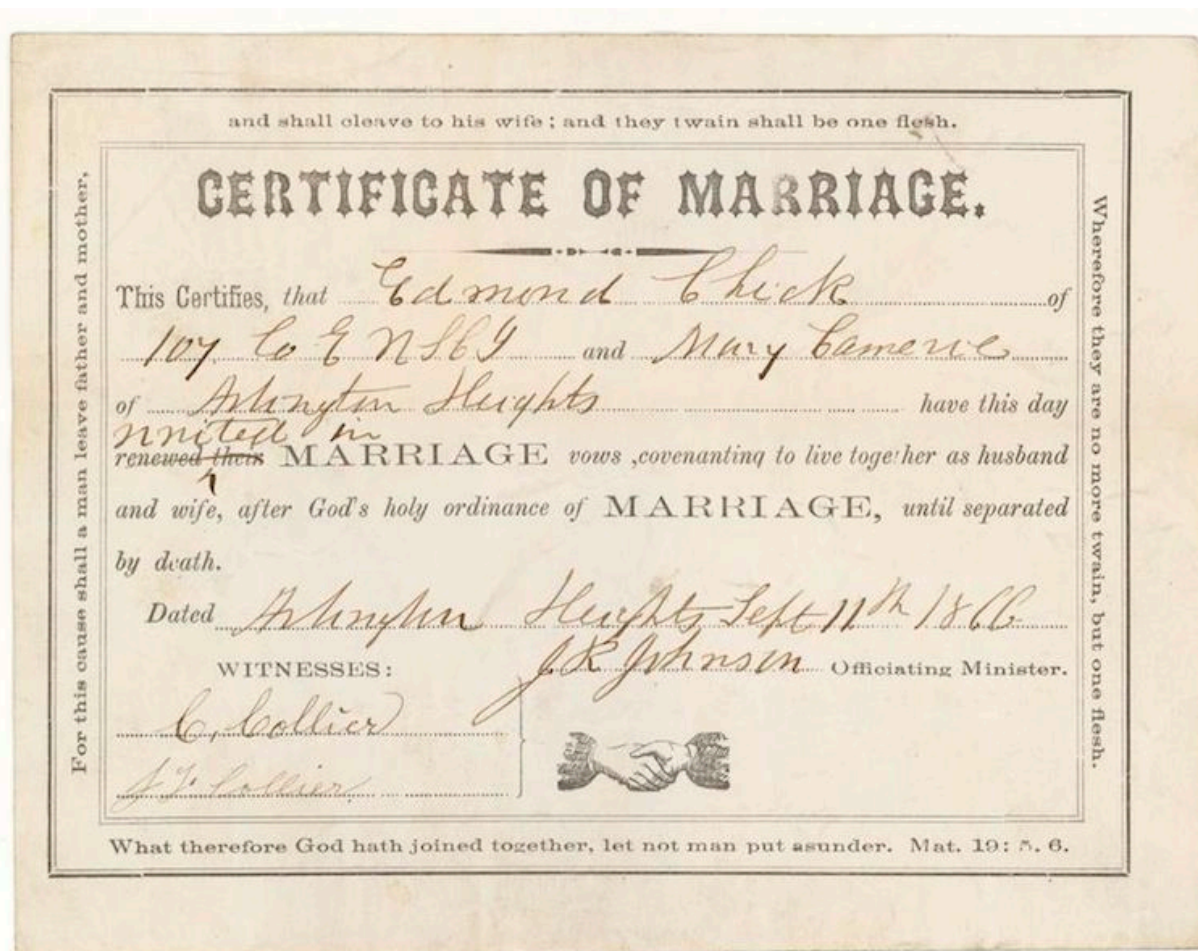 For this cause shall a man leave father and mother,
and shall cleave to his wife; and they twain shall be one flesh.
CERTIFICATE OF MARRIAGE.
This Certifies, that Edmond Chick of
107 Co E and Mary
of Arlington Heights have this day
united in
renewed their MARRIAGE vows ,covenanting to live together as husband
and wife, after God's holy ordinance of MARRIAGE, until separated
by death.
Dated Arlington Heights Sept 11th 1866
J R Johnson Officiating Minister.
WITNESSES:
C. Collier
Collier
Wherefore they are no more twain, but one flesh.
What therefore God hath joined together, let not man put asunder. Mat. 19: 5. 6.